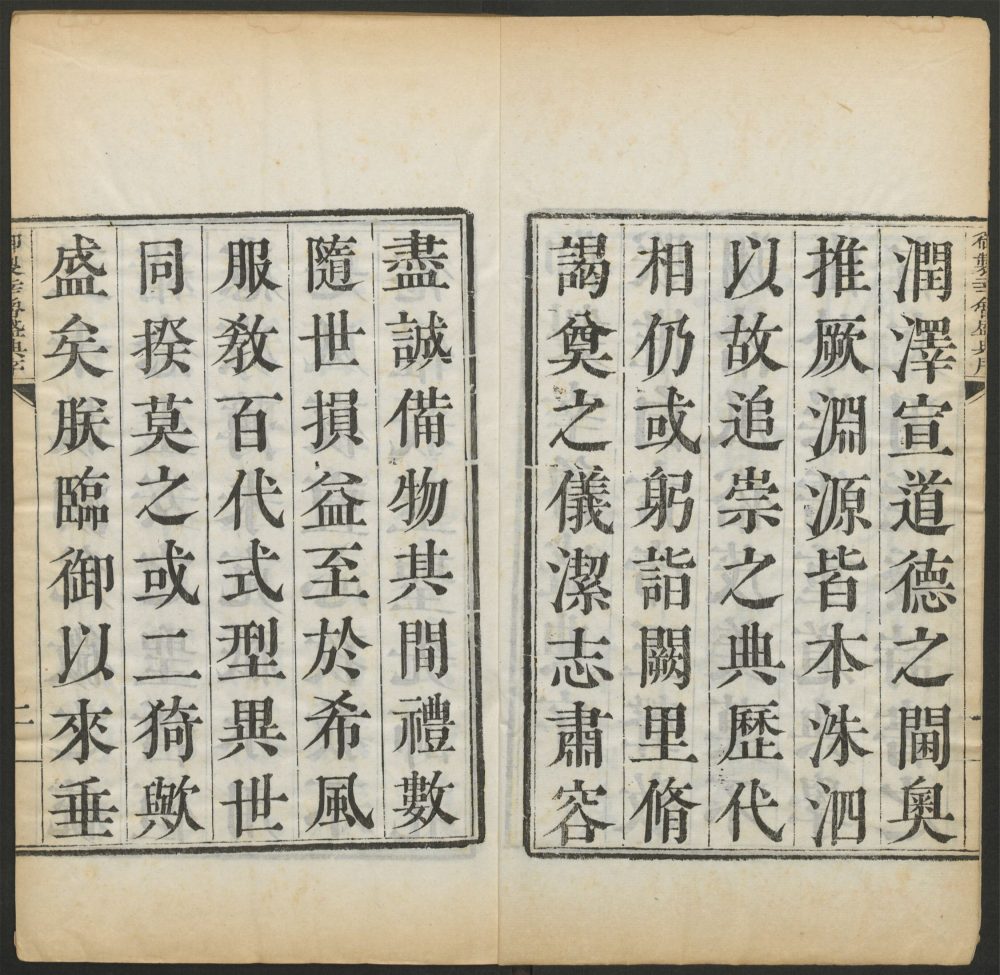 御製幸魯盛典序
潤澤宣道德之閫奧
推厥淵源皆本洙泗
以故追崇之典歷代
相仍或躬詣闕里脩
謁奠之儀潔志肅容
盡誠備物其間禮數
隨世損益至於希風
服敎百代式型異世
同揆莫之或二猗歟
盛矣朕臨御以來垂
御製幸魯盛典序
二